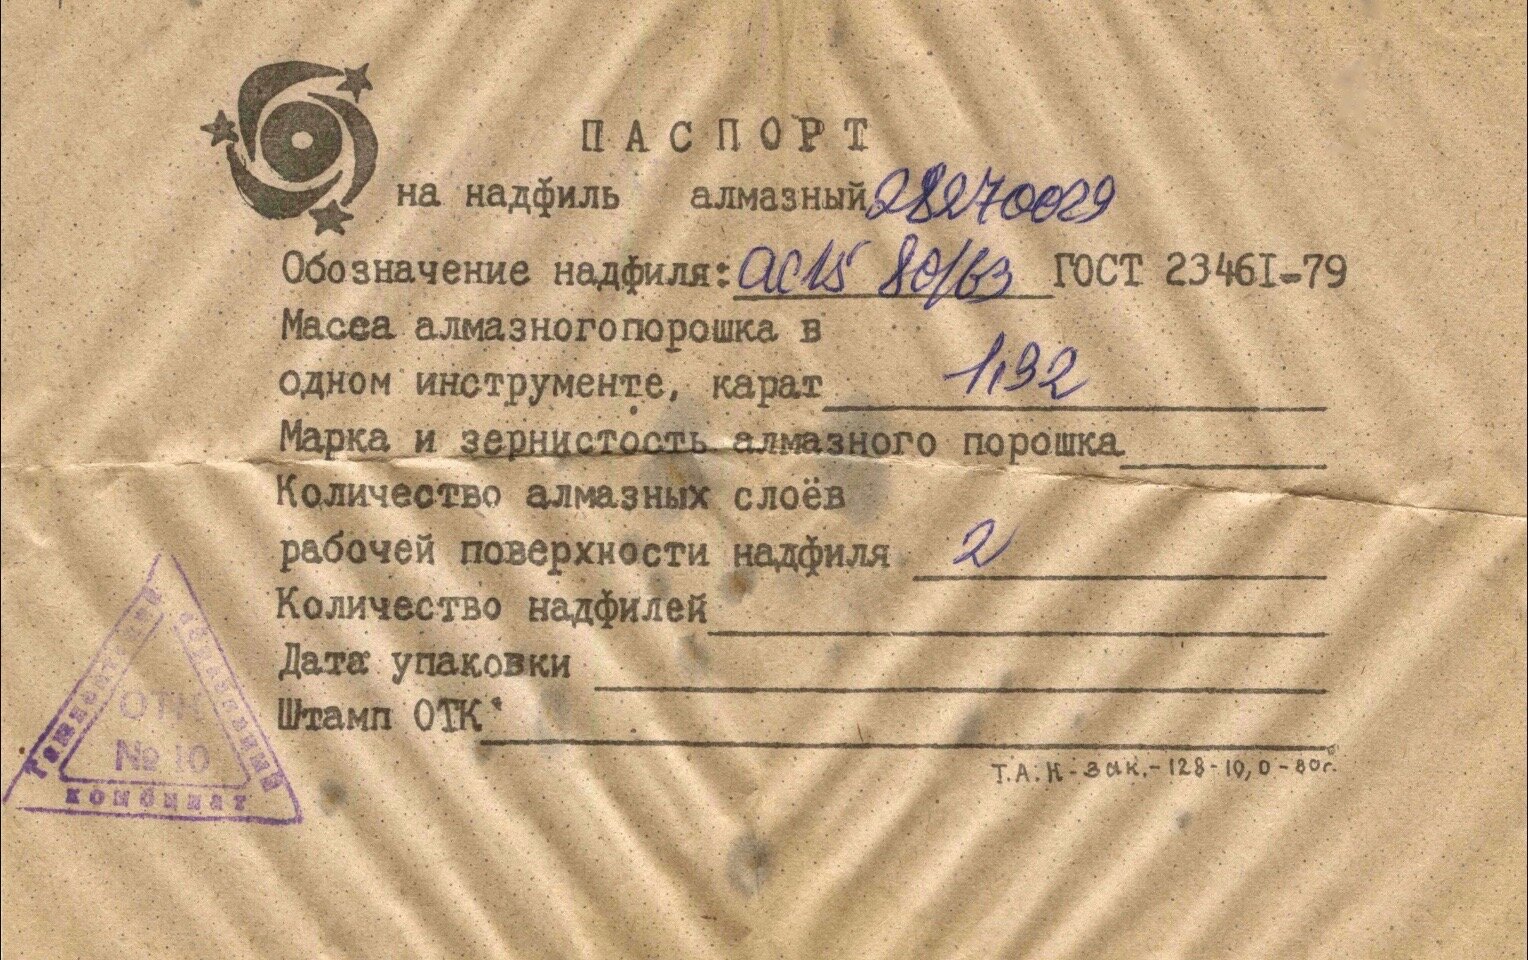 ПАСПОРТ
на надфиль алмазный 28270029
Обозначение надфиля: АС15 80/63 ГОСТ 2346I-79
Масса алмазногопорошка в
одном инструменте, карат 1,92
Марка и зернистость алмазного порошка
Количество алмазных слоёв
рабочей поверхности надфиля 2
Количество надфилей
Дата упаковки
Штамп ОТК
Т.А.Н-Зак.-128-10,0-80г.
Ташкентский
абразивный
комбинат
ОТК
№ 10